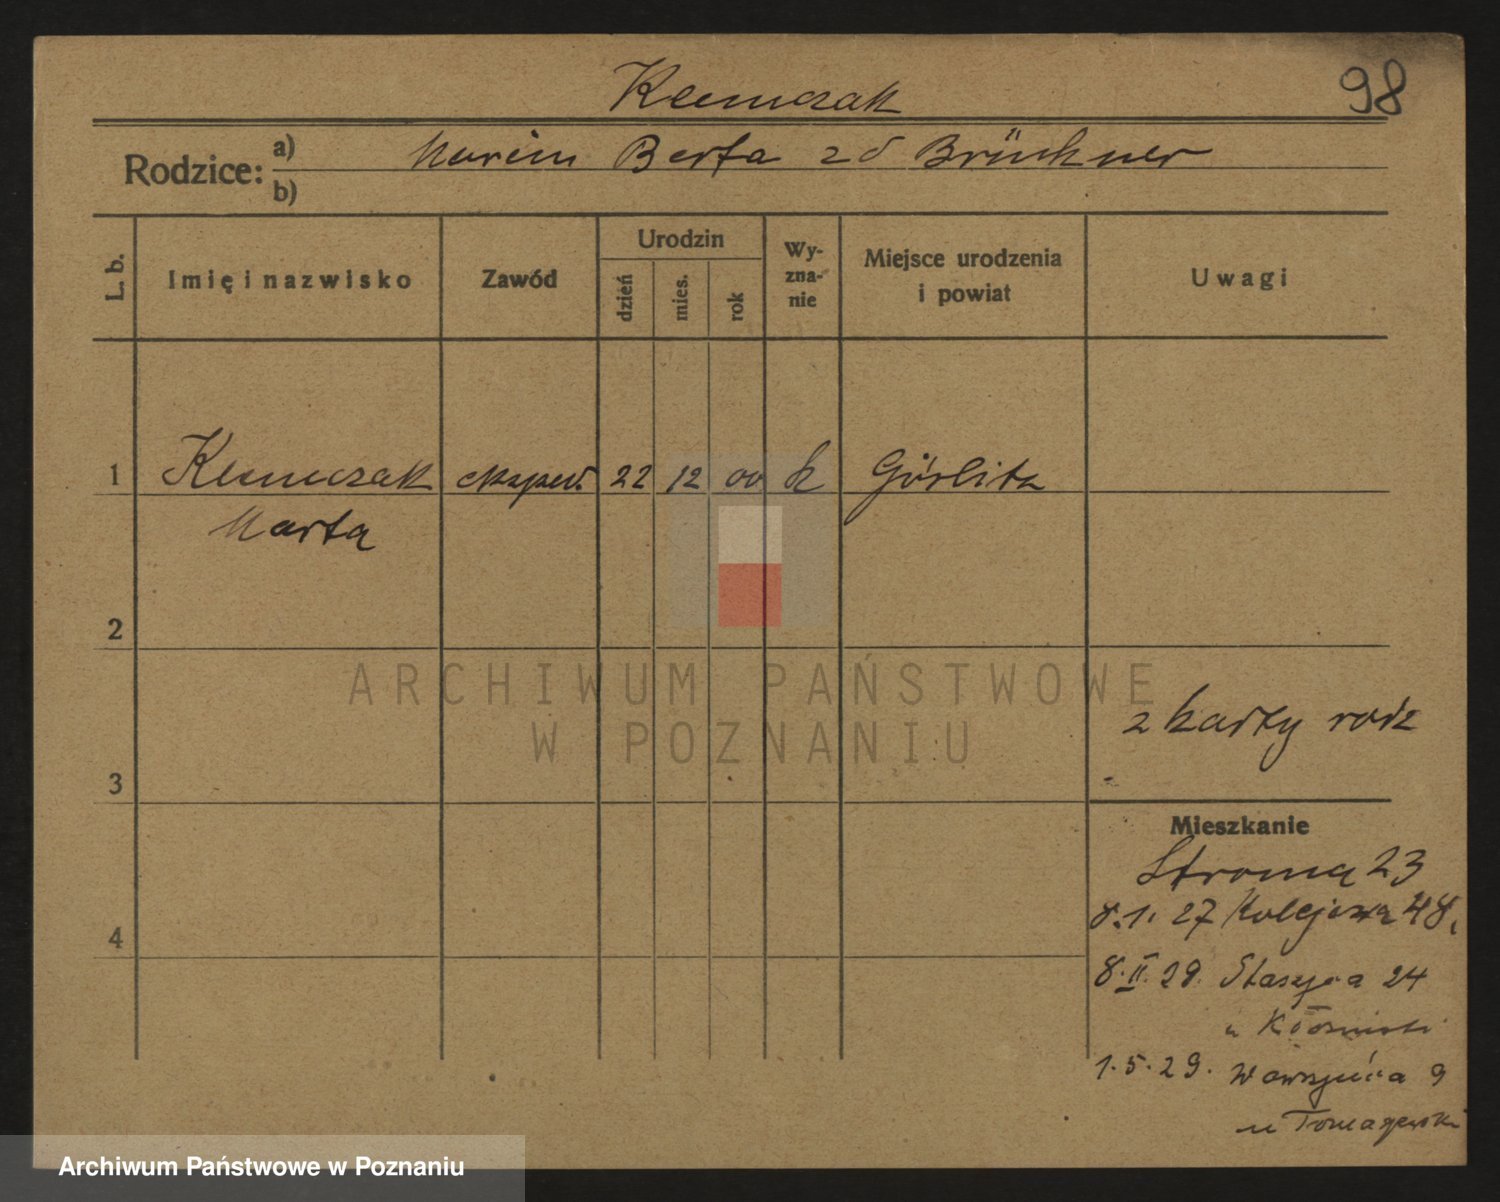 98
Rodzice: a) Marcin Berta zd Brückner
b)
L. b.
Imię i nazwisko
Zawód
Urodzin
dzień
mies.
rok
Wy-
zna-
nie
Miejsce urodzenia
i powiat
Uwagi
1 eksped. 22 12 00 k Görlitz
Marta
2
ARCHIWUM PAŃSTWOWE
W POZNANIU
z karty rodz
3
Mieszkanie
Stroma 23
8.1.27 Kolejowa 48.
4
8.II.29. Staszyca 24
u
1.5.29. Wawrzyńca 9
u
Archiwum Państwowe w Poznaniu